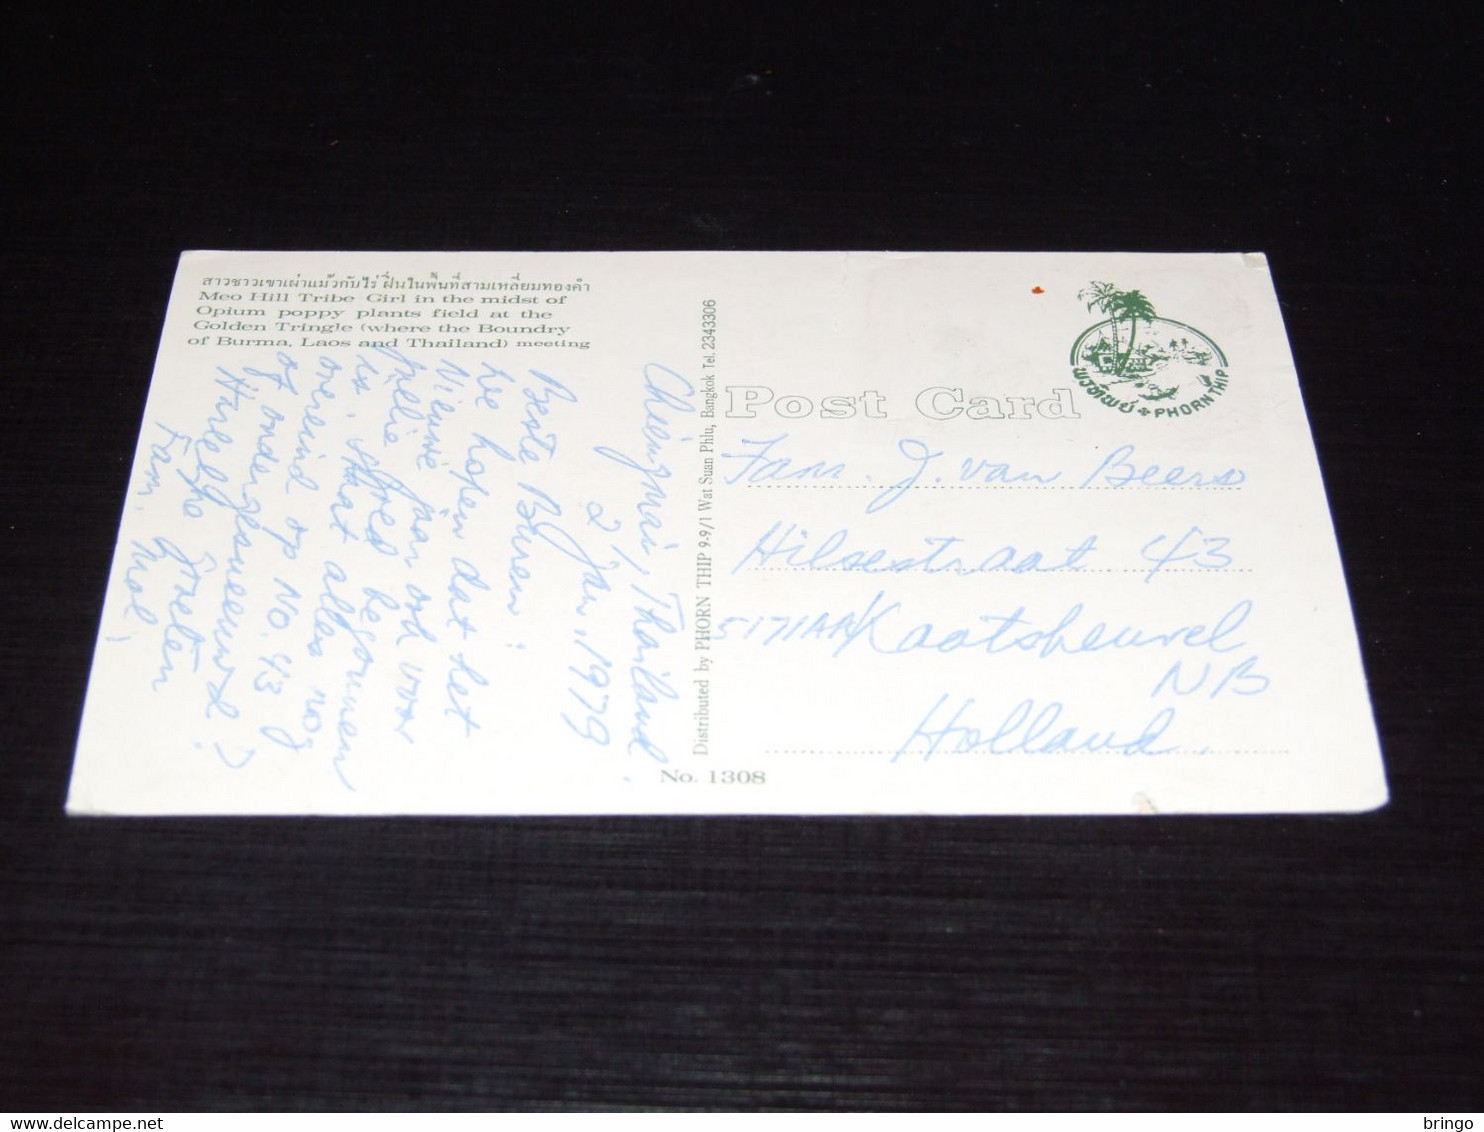 สาวชาวเขาเผ่าแม้วกับไร่ ฝิ่นในพื้นที่สามเหลี่ยมทองคำ
Meo Hill Tribe Girl in the midst of
Opium poppy plants field at the
Golden Tringle (where the Boundry
of Burma, Laos and Thailand) meeting
Chiengmai, Thailand
2 Jan, 1979
Beste Buren!
We hopen dat het
Nieuwe jaar ook voor
jullie goed begonnen
is. Staat alles nog
overeind op No. 43
of ondergesneeuwd?
Hartelijke Groeten
Fam. Mol,
Distributed by PHORN THIP 9-9/1 Wat Suan Phlu, Bangkok Tel. 2343306
No. 1308
Post Card
พรทิพย์ PHORN THIP
Fam. J. van Beers
Hilsestraat 43
5171AA Kaatsheuvel
NB
Holland.
bringo
delcampe.net